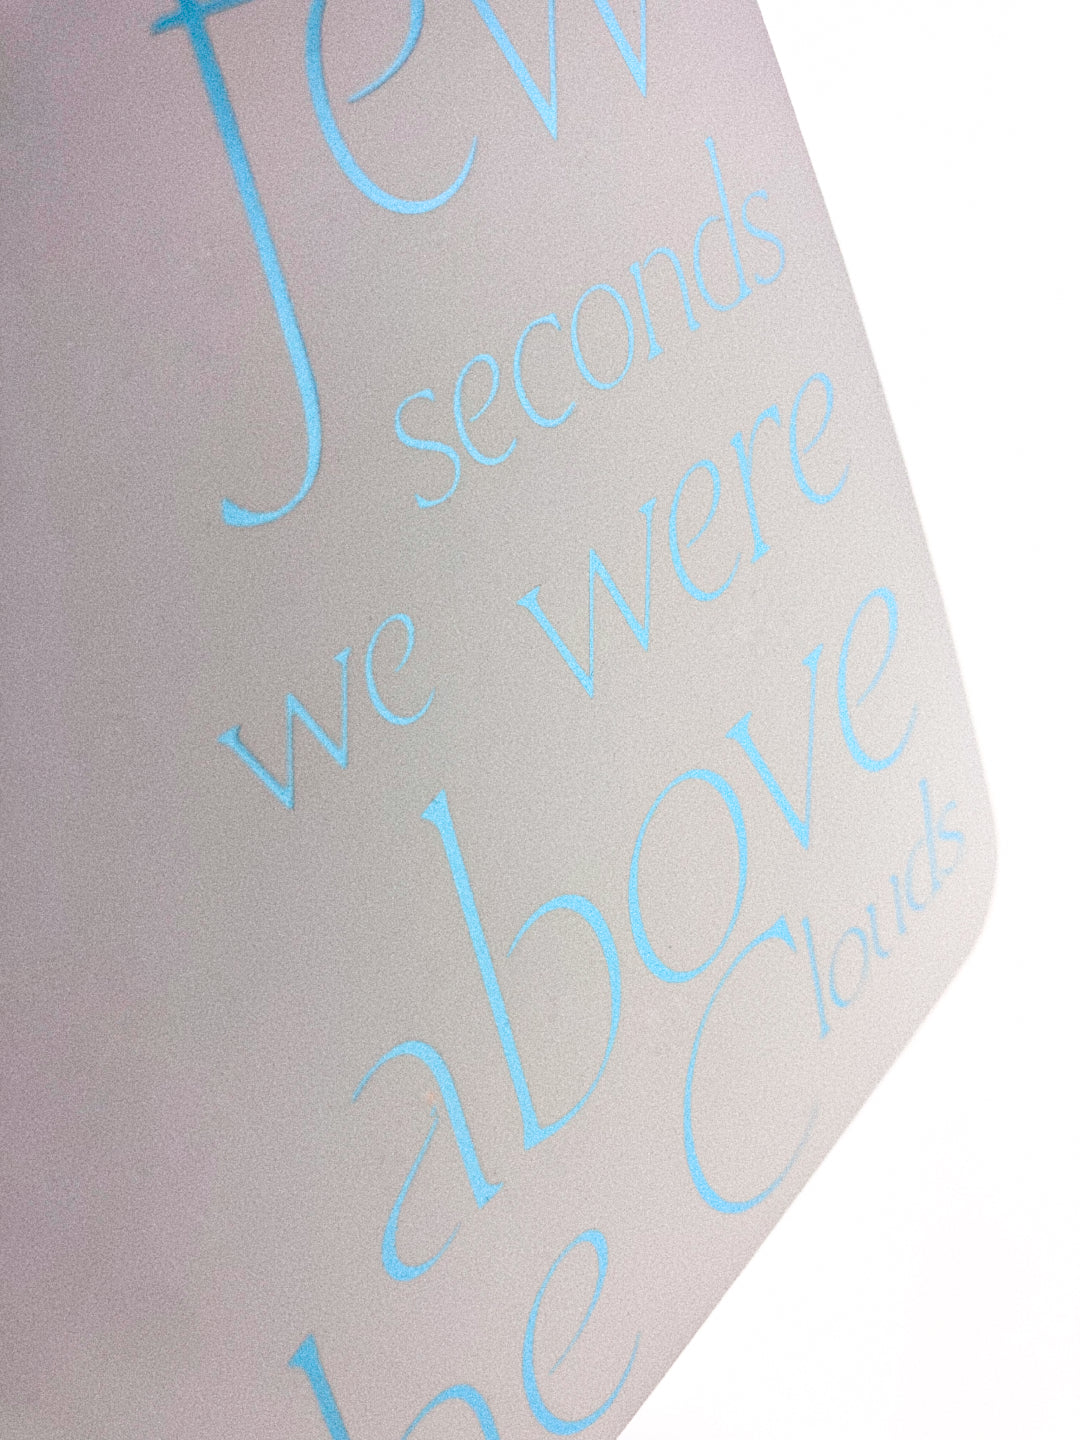 few
seconds
we were
above
Clouds
he